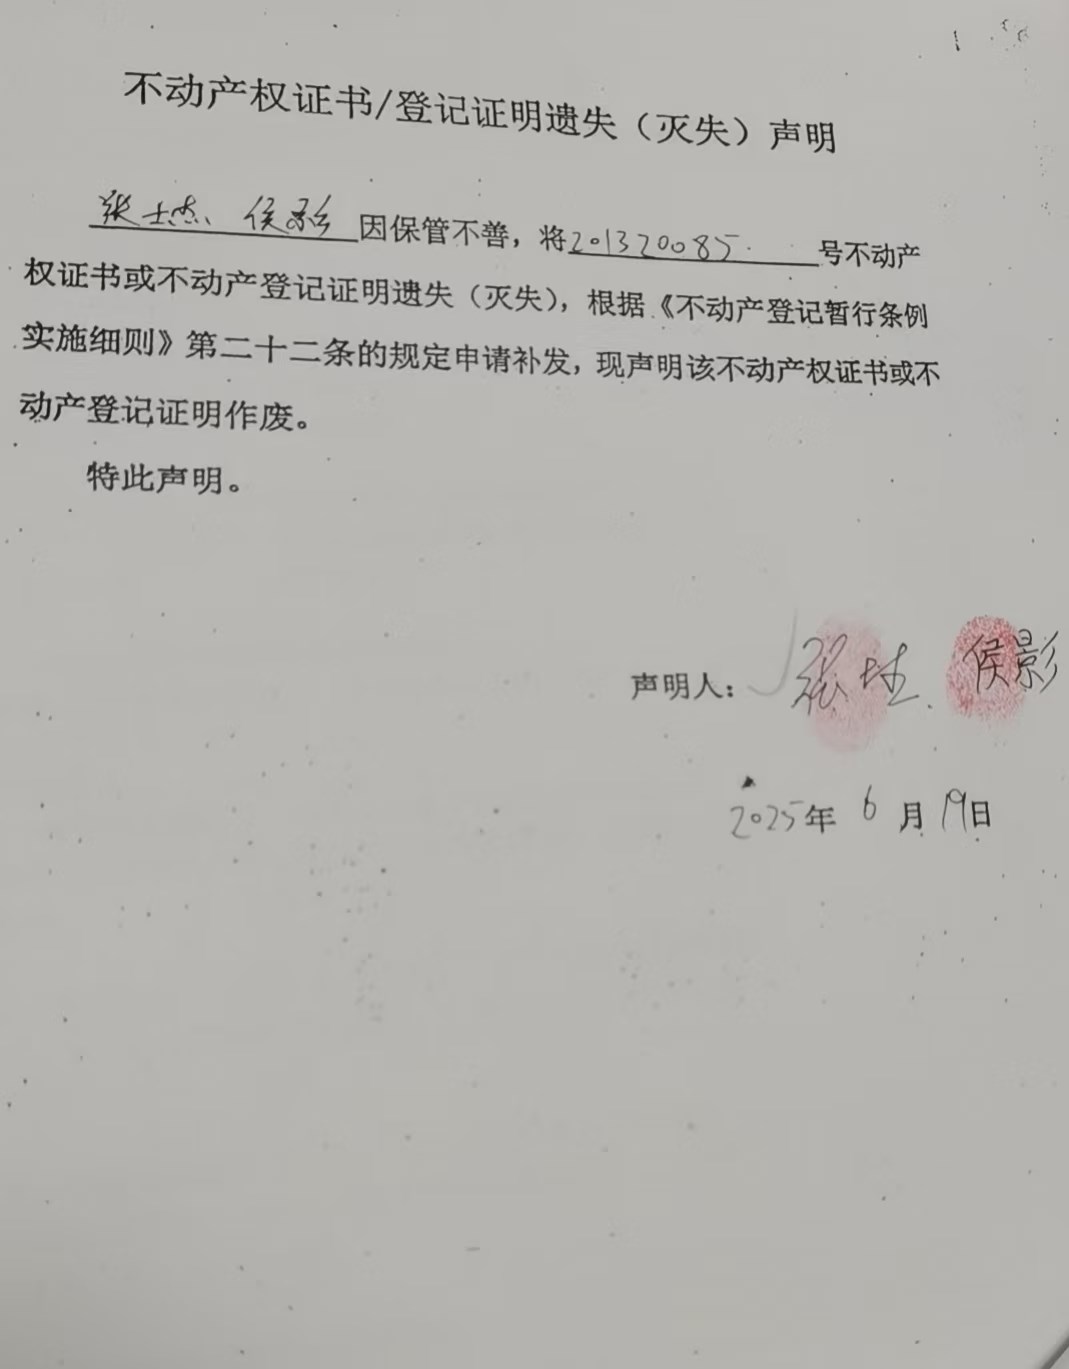 不动产权证书/登记证明遗失（灭失）声明
张士杰、侯影因保管不善，将201320085号不动产
权证书或不动产登记证明遗失（灭失），根据《不动产登记暂行条例
实施细则》第二十二条的规定申请补发，现声明该不动产权证书或不
动产登记证明作废。
特此声明。
声明人：张 侯影
2025年6月19日